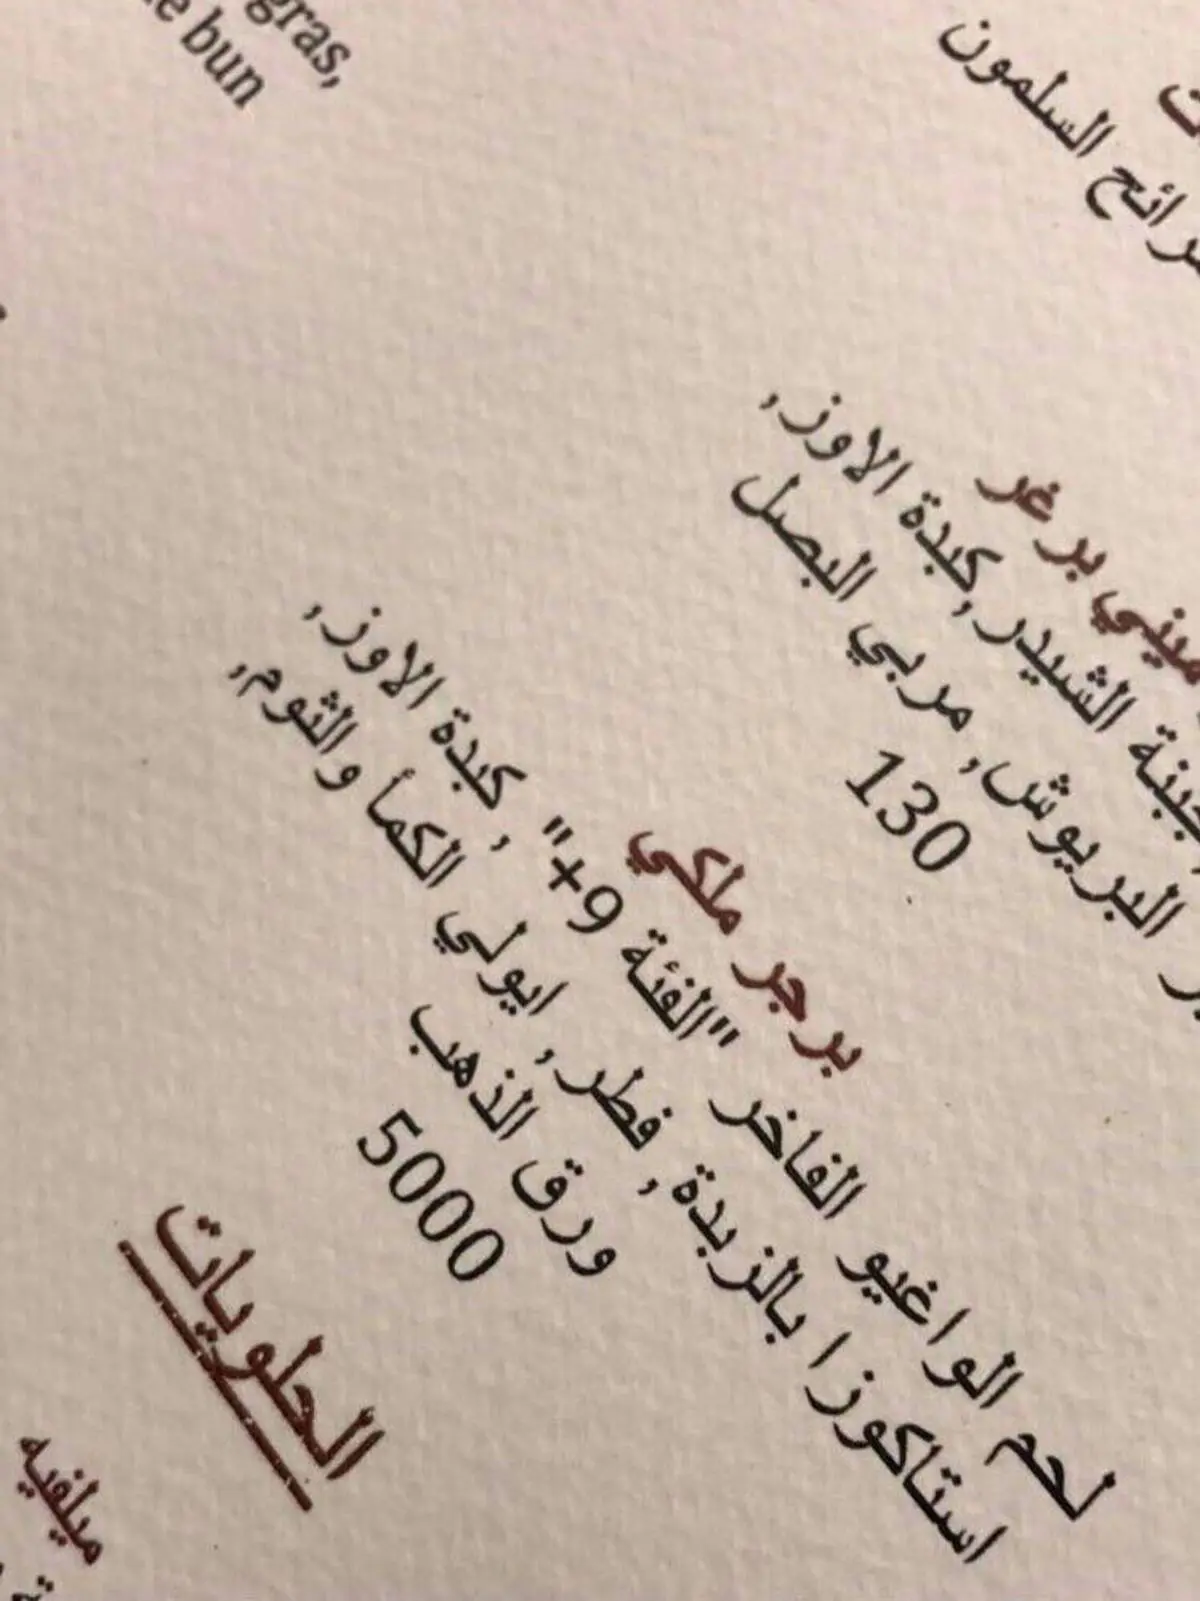 gras,
bun
السلمون
ميني برغر
الشيدر, كبدة الاوز,
البريوش, مربي البصل
130
برجر ملكي
لحم الواغيو الفاخر "الفئة 9+" , كبدة الاوز,
استاكوزا بالزبدة, فطر, ايولي الكمأ والثوم,
ورق الذهب
5000
الحلويات
ميلفيه